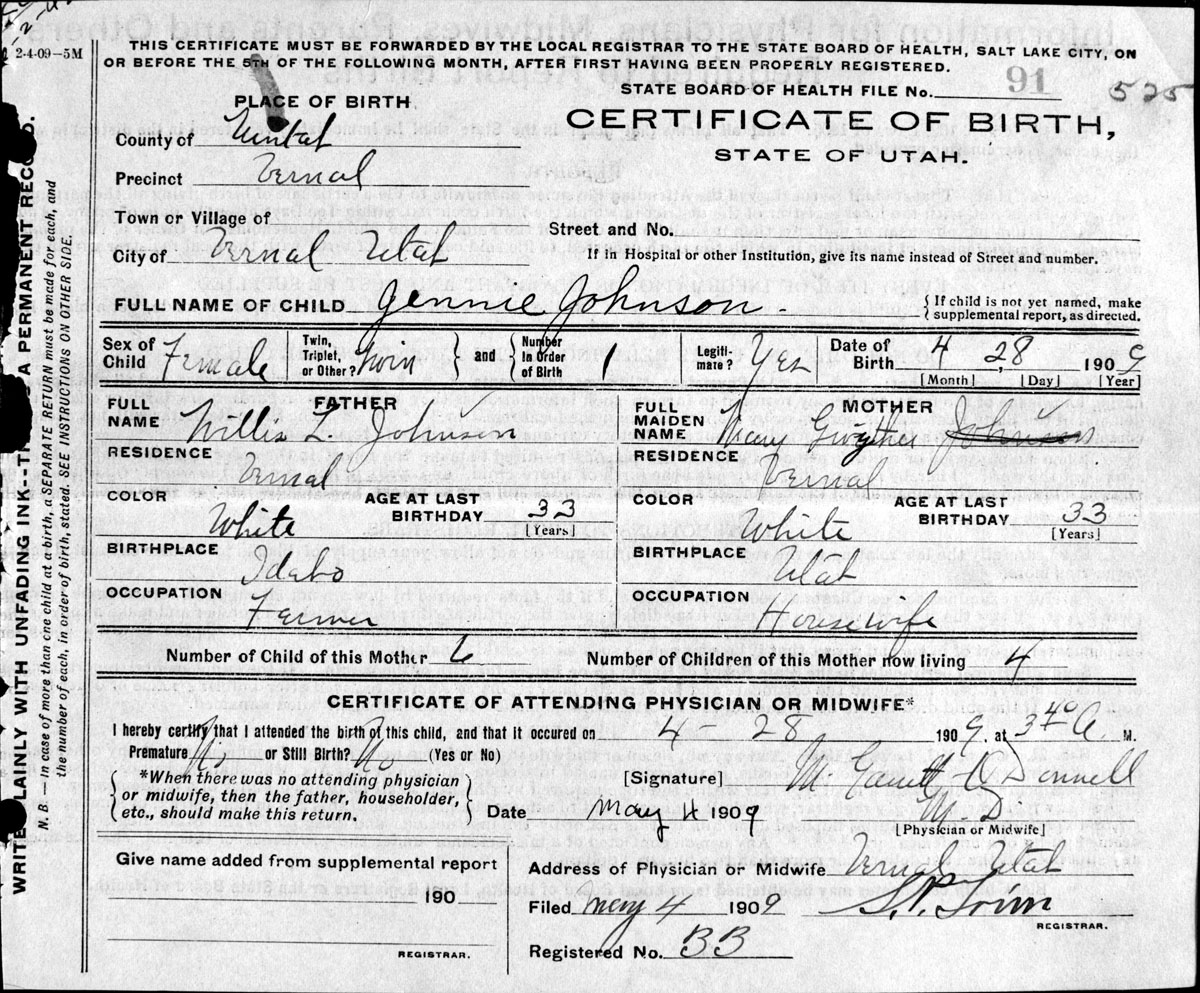 2-4-09—5M
THIS CERTIFICATE MUST BE FORWARDED BY THE LOCAL REGISTRAR TO THE STATE BOARD OF HEALTH, SALT LAKE CITY, ON
OR BEFORE THE 5TH OF THE FOLLOWING MONTH, AFTER FIRST HAVING BEEN PROPERLY REGISTERED.
STATE BOARD OF HEALTH FILE No. 91 525
PLACE OF BIRTH
CERTIFICATE OF BIRTH,
STATE OF UTAH.
County of Uintah
Precinct Vernal
Town or Village of
Street and No.
City of Vernal Utah
If in Hospital or other Institution, give its name instead of Street and number.
FULL NAME OF CHILD Jennie Johnson
{If child is not yet named, make
supplemental report, as directed.
Sex of Child Female
Twin, Triplet, or Other? twin } and { Number in Order of Birth 1
Legitimate? Yes
Date of Birth 4, 28 1909
[Month] [Day] [Year]
FATHER
FULL NAME Willis L. Johnson
RESIDENCE Vernal
COLOR White
AGE AT LAST BIRTHDAY 33
[Years]
BIRTHPLACE Idaho
OCCUPATION Farmer
MOTHER
FULL MAIDEN NAME Mary Gwyther Johnson
RESIDENCE Vernal
COLOR White
AGE AT LAST BIRTHDAY 33
[Years]
BIRTHPLACE Utah
OCCUPATION Housewife
Number of Child of this Mother 6
Number of Children of this Mother now living 4
CERTIFICATE OF ATTENDING PHYSICIAN OR MIDWIFE*
I hereby certify that I attended the birth of this child, and that it occured on 4 - 28 1909, at 3 40 A. M.
Premature No or Still Birth? No (Yes or No)
{*When there was no attending physician
or midwife, then the father, householder,
etc., should make this return.}
[Signature] M. Donnell
M. D.
[Physician or Midwife]
Date May 4 1909
Give name added from supplemental report
190
REGISTRAR.
Address of Physician or Midwife Vernal Utah
Filed May 4 1909
REGISTRAR.
Registered No. BB
WRITE PLAINLY WITH UNFADING INK--THIS A PERMANENT RECORD.
N. B. — In case of more than one child at a birth, a SEPARATE RETURN must be made for each, and
the number of each, in order of birth, stated. SEE INSTRUCTIONS ON OTHER SIDE.